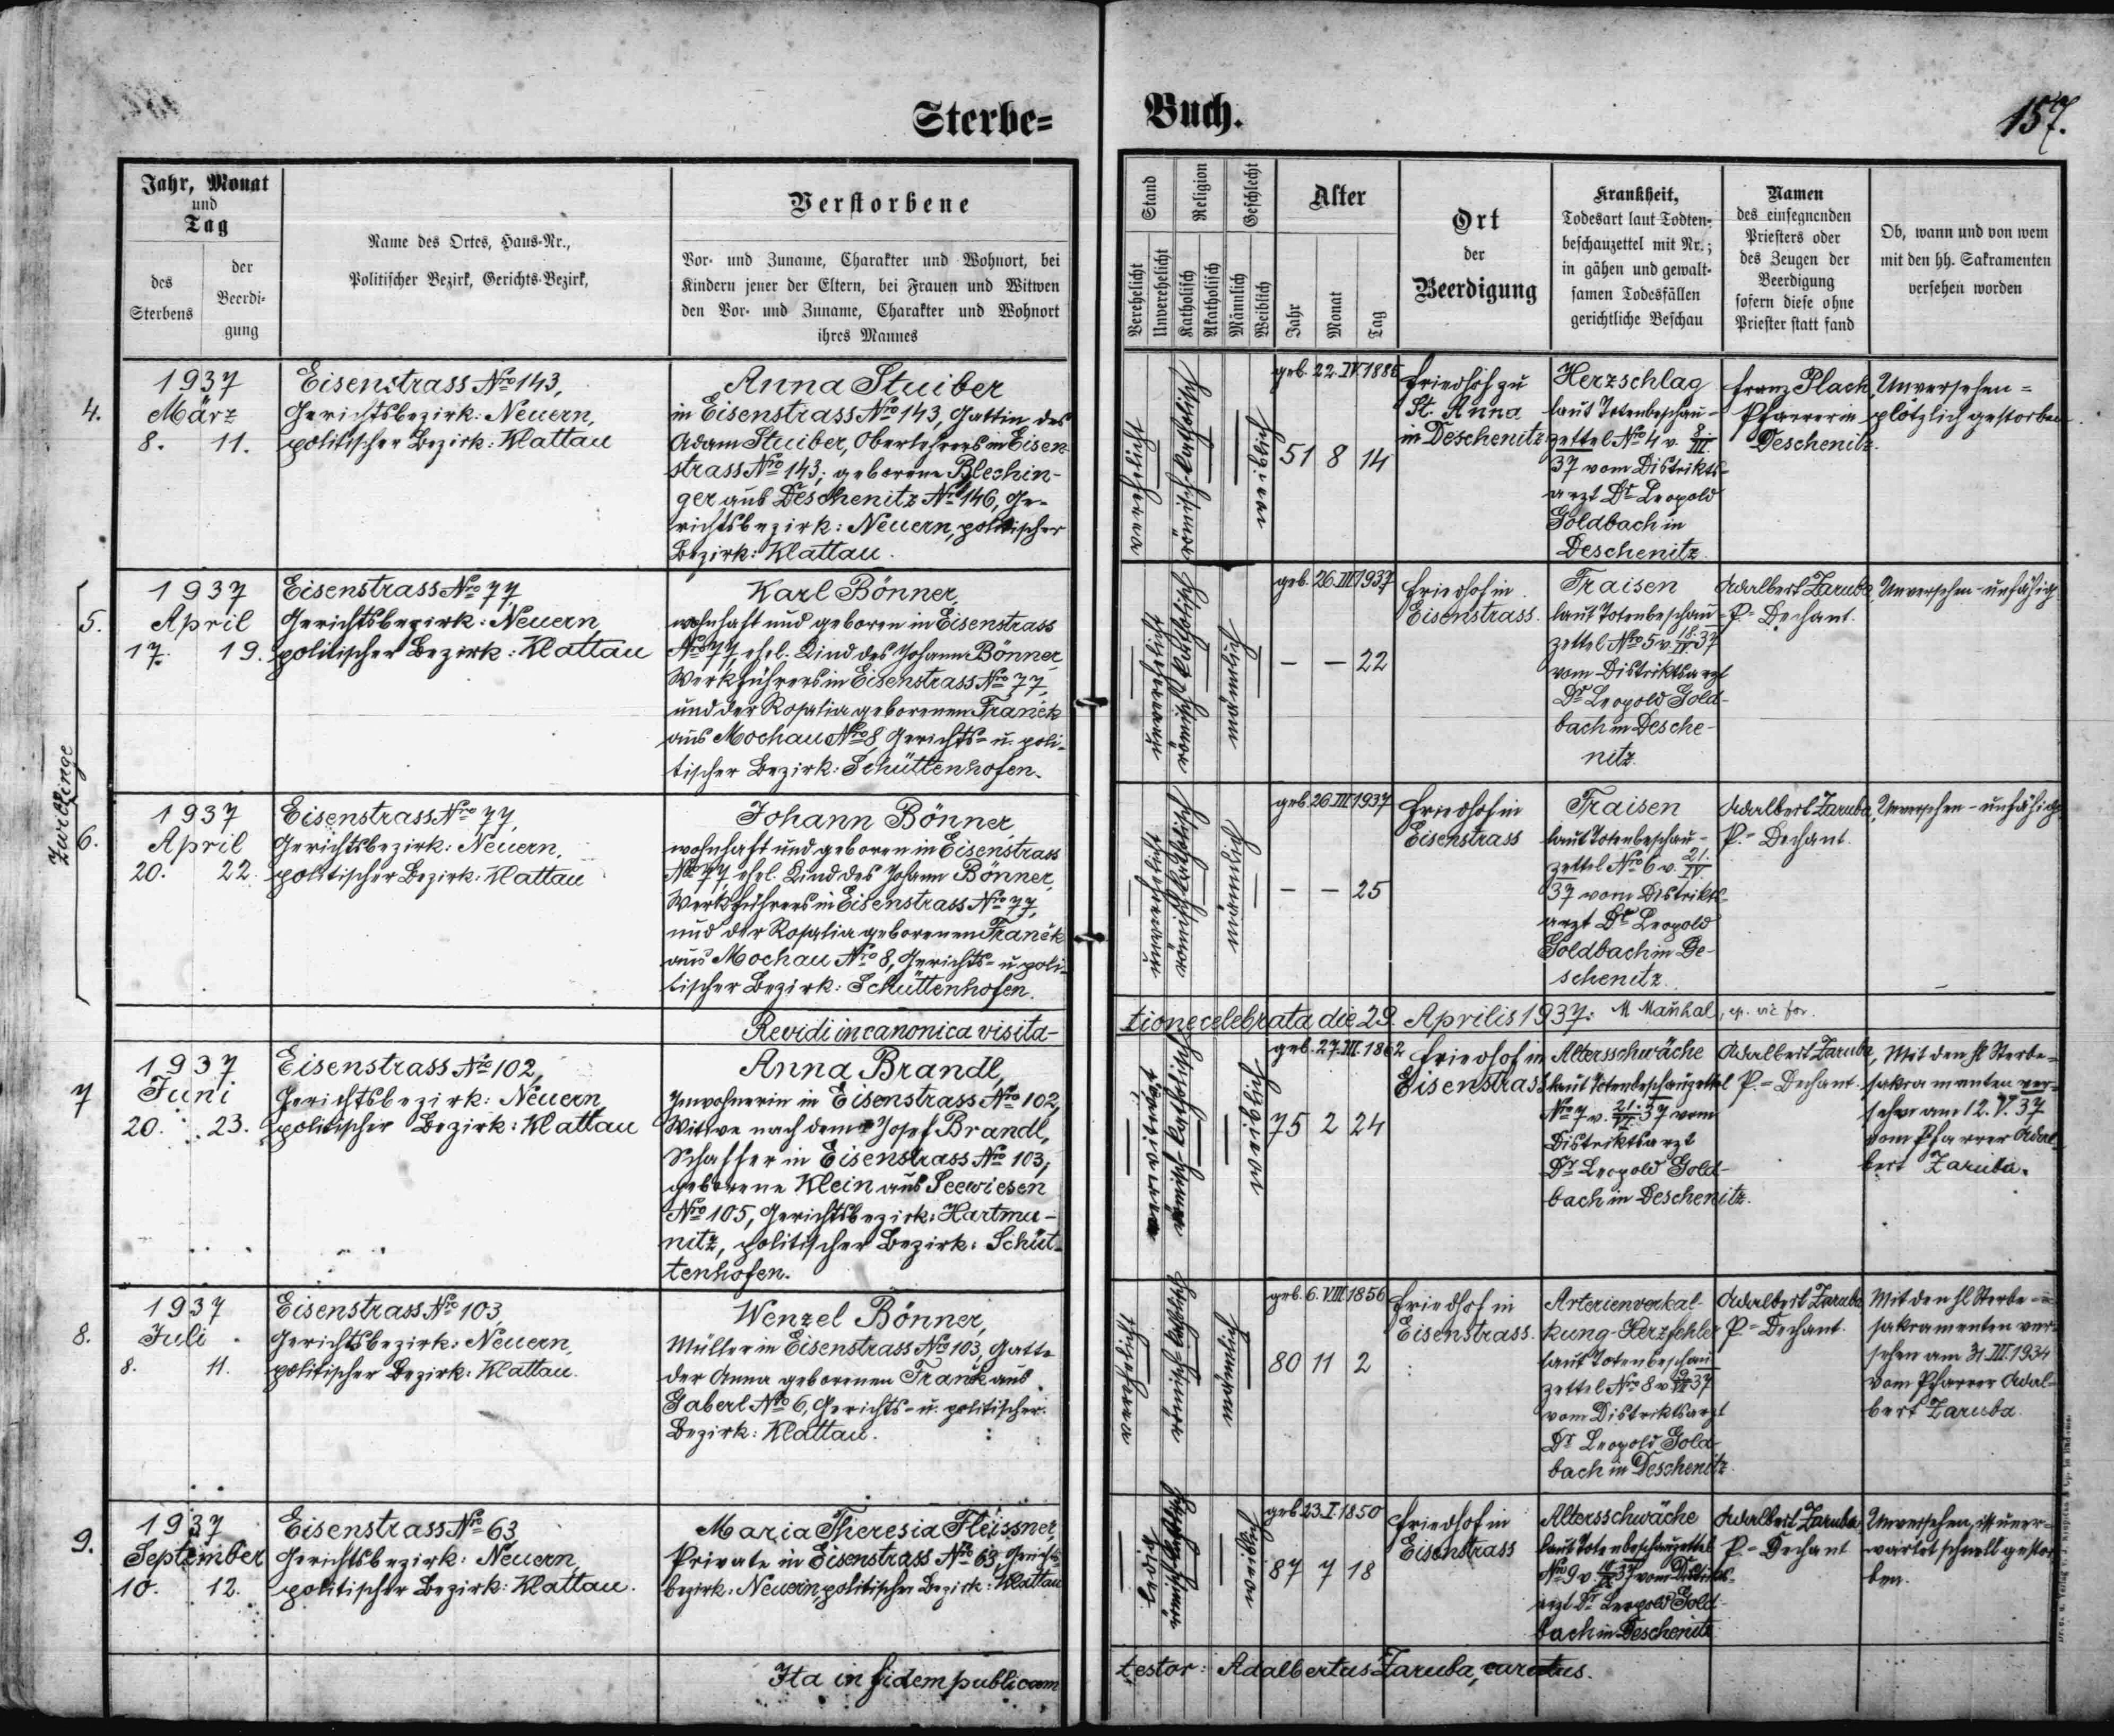 Sterbe=
Buch.
157.
Jahr, Monat
und
Tag
des
Sterbens
der
Beerdi-
gung
Name des Ortes, Haus-Nr.,
Politischer Bezirk, Gerichts-Bezirk,
Verstorbene
Vor- und Zuname, Charakter und Wohnort, bei
Kindern jener der Eltern, bei Frauen und Witwen
den Vor- und Zuname, Charakter und Wohnort
ihres Mannes
Stand
Verehelicht
Unverehelicht
Religion
Katholisch
Akatholisch
Geschlecht
Männlich
Weiblich
Alter
Jahr
Monat
Tag
Ort
der
Beerdigung
Krankheit,
Todesart laut Todten-
beschauzettel mit Nr.;
in gähen und gewalt-
samen Todesfällen
gerichtliche Beschau
Namen
des einsegnenden
Priesters oder
des Zeugen der
Beerdigung
sofern diese ohne
Priester statt fand
Ob, wann und von wem
mit den hh. Sakramenten
versehen worden
4.
1937
März
8. 11.
Eisenstrass Nro 143,
Gerichtsbezirk: Neuern,
politischer Bezirk: Klattau
Anna Stuiber
in Eisenstrass Nro 143, Gattin des
Adam Stuiber, Oberlehrers in Eisen-
strass Nro 143; geborene Blechin-
ger aus Deschenitz Nro 146, Ge-
richtsbezirk: Neuern, politischer
Bezirk: Klattau.
verehelicht
römisch-katholisch
weiblich
geb. 22. IV. 1885
51 8 14
Friedhof zu
St. Anna
in Deschenitz
Herzschlag
laut Totenbeschau-
zettel Nro 4 v. 8./III.
37 vom Distrikts-
arzt Dr Leopold
Goldbach in
Deschenitz.
Franz Plach,
Pfarrer in
Deschenitz.
Unversehen =
plötzlich gestorben.
Zwillinge
5.
1937
April
17. 19.
Eisenstrass Nro 77,
Gerichtsbezirk: Neuern,
politischer Bezirk: Klattau
Karl Bönner,
wohnhaft und geboren in Eisenstrass
Nro 77, ehel. Kind des Johann Bönner,
Werkführers in Eisenstrass Nro 77,
und der Rosalia geborenen Franěk
aus Mochau Nro 8, Gerichts- u. poli-
tischer Bezirk: Schüttenhofen.
unverehelicht
römisch katholisch
männlich
geb. 26. III 1937
– – 22
Friedhof in
Eisenstrass.
Fraisen
laut Totenbeschau-
zettel Nro 5 v. 18./IV. 37
vom Distriktsarzt
Dr Leopold Gold-
bach in Desche-
nitz.
Adalbert Zaruba,
P.- Dechant.
Unversehen - unfähig
6.
1937
April
20. 22.
Eisenstrass Nro 77,
Gerichtsbezirk: Neuern,
politischer Bezirk: Klattau
Johann Bönner,
wohnhaft und geboren in Eisenstrass
Nro 77, ehel. Kind des Johann Bönner,
Werkführers in Eisenstrass Nro 77,
und der Rosalia geborenen Franěk
aus Mochau Nro 8, Gerichts- u. poli-
tischer Bezirk: Schüttenhofen.
unverehelicht
römisch katholisch
männlich
geb. 26. III 1937
– – 25
Friedhof in
Eisenstrass
Fraisen
laut Totenbeschau-
zettel Nro 6 v. 21./IV
37 vom Distrikts-
arzt Dr Leopold
Goldbach in De-
schenitz.
Adalbert Zaruba,
P.- Dechant.
Unversehen - unfähig
Revidi in canonica visita-
tione celebrata die 29. Aprilis 1937:
7
1937
Juni
20. 23.
Eisenstrass Nro 102,
Gerichtsbezirk: Neuern
politischer Bezirk: Klattau
Anna Brandl,
Inwohnerin in Eisenstrass Nro 102,
Witwe nach dem Josef Brandl,
Schaffer in Eisenstrass Nro 103,
geborene Klein aus Seewiesen
Nro 105, Gerichtsbezirk: Hartma-
nitz, politischer Bezirk: Schüt-
tenhofen.
verwitwet
römisch-katholisch
weiblich
geb. 27. III. 1862
75 2 24
Friedhof in
Eisenstrass
Altersschwäche
laut Totenbeschauzettel
Nro 7 v. 21./VI. 37 vom
Distriktsarzt
Dr Leopold Gold-
bach in Deschenitz.
Adalbert Zaruba,
P.- Dechant.
Mit den hl Sterbe-
sakramenten ver-
sehen am 12. V. 37
vom Pfarrer Adal-
bert Zaruba.
8.
1937
Juli
8. 11.
Eisenstrass Nro 103,
Gerichtsbezirk: Neuern,
politischer Bezirk: Klattau.
Wenzel Bönner,
Müller in Eisenstrass Nro 103, Gatte
der Anna geborenen Frank aus
Gaberl Nro 6, Gerichts- u. politischer
Bezirk: Klattau.
verehelicht
römisch katholisch
männlich
geb. 6. VIII 1856
80 11 2
Friedhof in
Eisenstrass.
Arterienverkal-
kung - Herzfehler
laut Totenbeschau
zettel Nro 8 v. 37
vom Distriktsarzt
Dr Leopold Gold-
bach in Deschenitz.
Adalbert Zaruba
P.- Dechant.
Mit den hl Sterbe-
sakramenten ver-
sehen am 31. III. 1934
vom Pfarrer Adal-
bert Zaruba.
9.
1937
September
10. 12.
Eisenstrass Nro 63
Gerichtsbezirk: Neuern,
politischer Bezirk: Klattau.
Maria Theresia Fleissner,
Private in Eisenstrass Nro 63, Gerichts-
bezirk: Neuern, politischer Bezirk: Klattau
ledig
römisch katholisch
weiblich
geb 23. I. 1850
87 7 18
Friedhof in
Eisenstrass
Altersschwäche
laut Totenbeschauzettel
Nro 9 v. 37 vom Distrikts-
arzt Dr Leopold Gold-
bach in Deschenitz
Adalbert Zaruba,
P.- Dechant
Unversehen, ist uner-
wartet schnell gestor-
ben.
Ita in fidem publicam
testor: Adalbertus Zaruba, curatus.